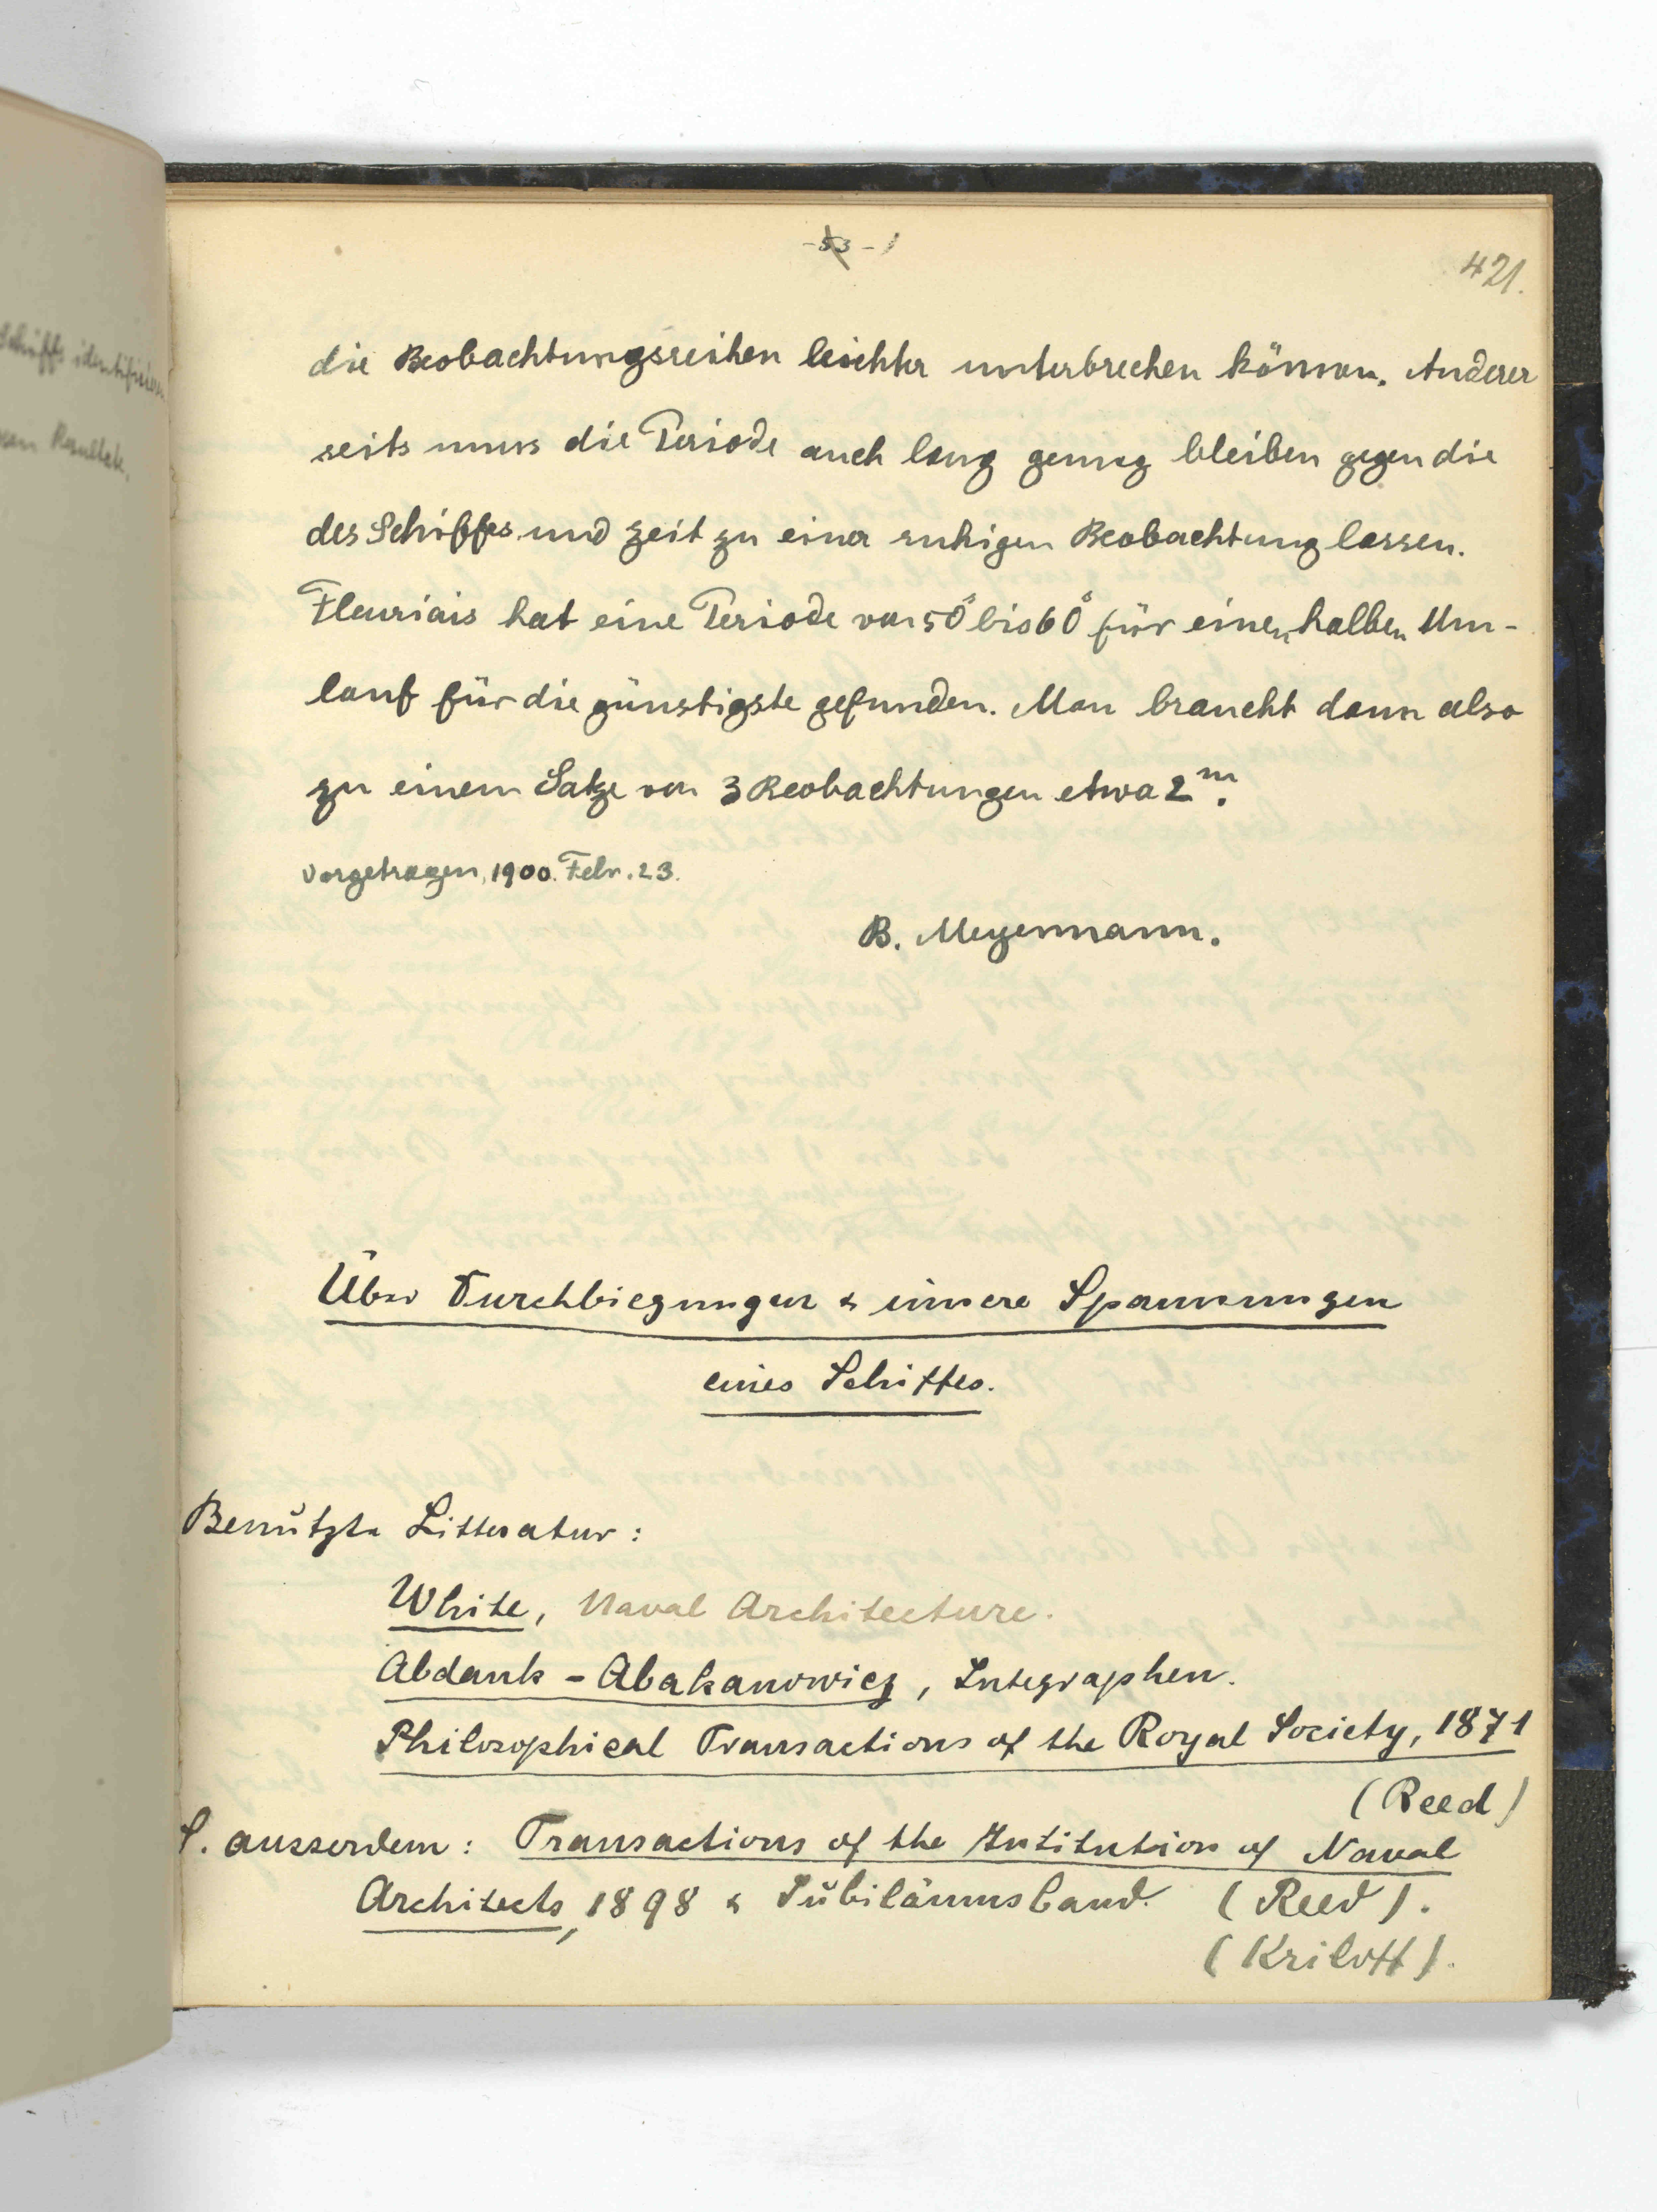 -53-1
421.
die Beobachtungsreihen leichter unterbrechen können. Anderer
seits muss die Periode auch lang genug bleiben gegen die
des Schiffes und Zeit zu einer ruhigen Beobachtung lassen.
Fleuriais hat eine Periode von 50ˢ bis 60ˢ für einen halben Um-
lauf für die günstigste gefunden. Man braucht dann also
zu einem Satze von 3 Beobachtungen etwa 2ᵐ.
Vorgetragen, 1900. Febr. 23.
B. Meyermann.
Über Durchbiegungen & innere Spannungen
eines Schiffes.
Benützte Litteratur:
White, Naval Architecture.
Abdank-Abakanowicz, Integraphen.
Philosophical Transactions of the Royal Society, 1871
(Reed)
S. ausserdem: Transactions of the Institution of Naval
Architects, 1898 & Jubiläumsband. (Reed).
(Kriloff).
schiffs identifizieren
Resultate,